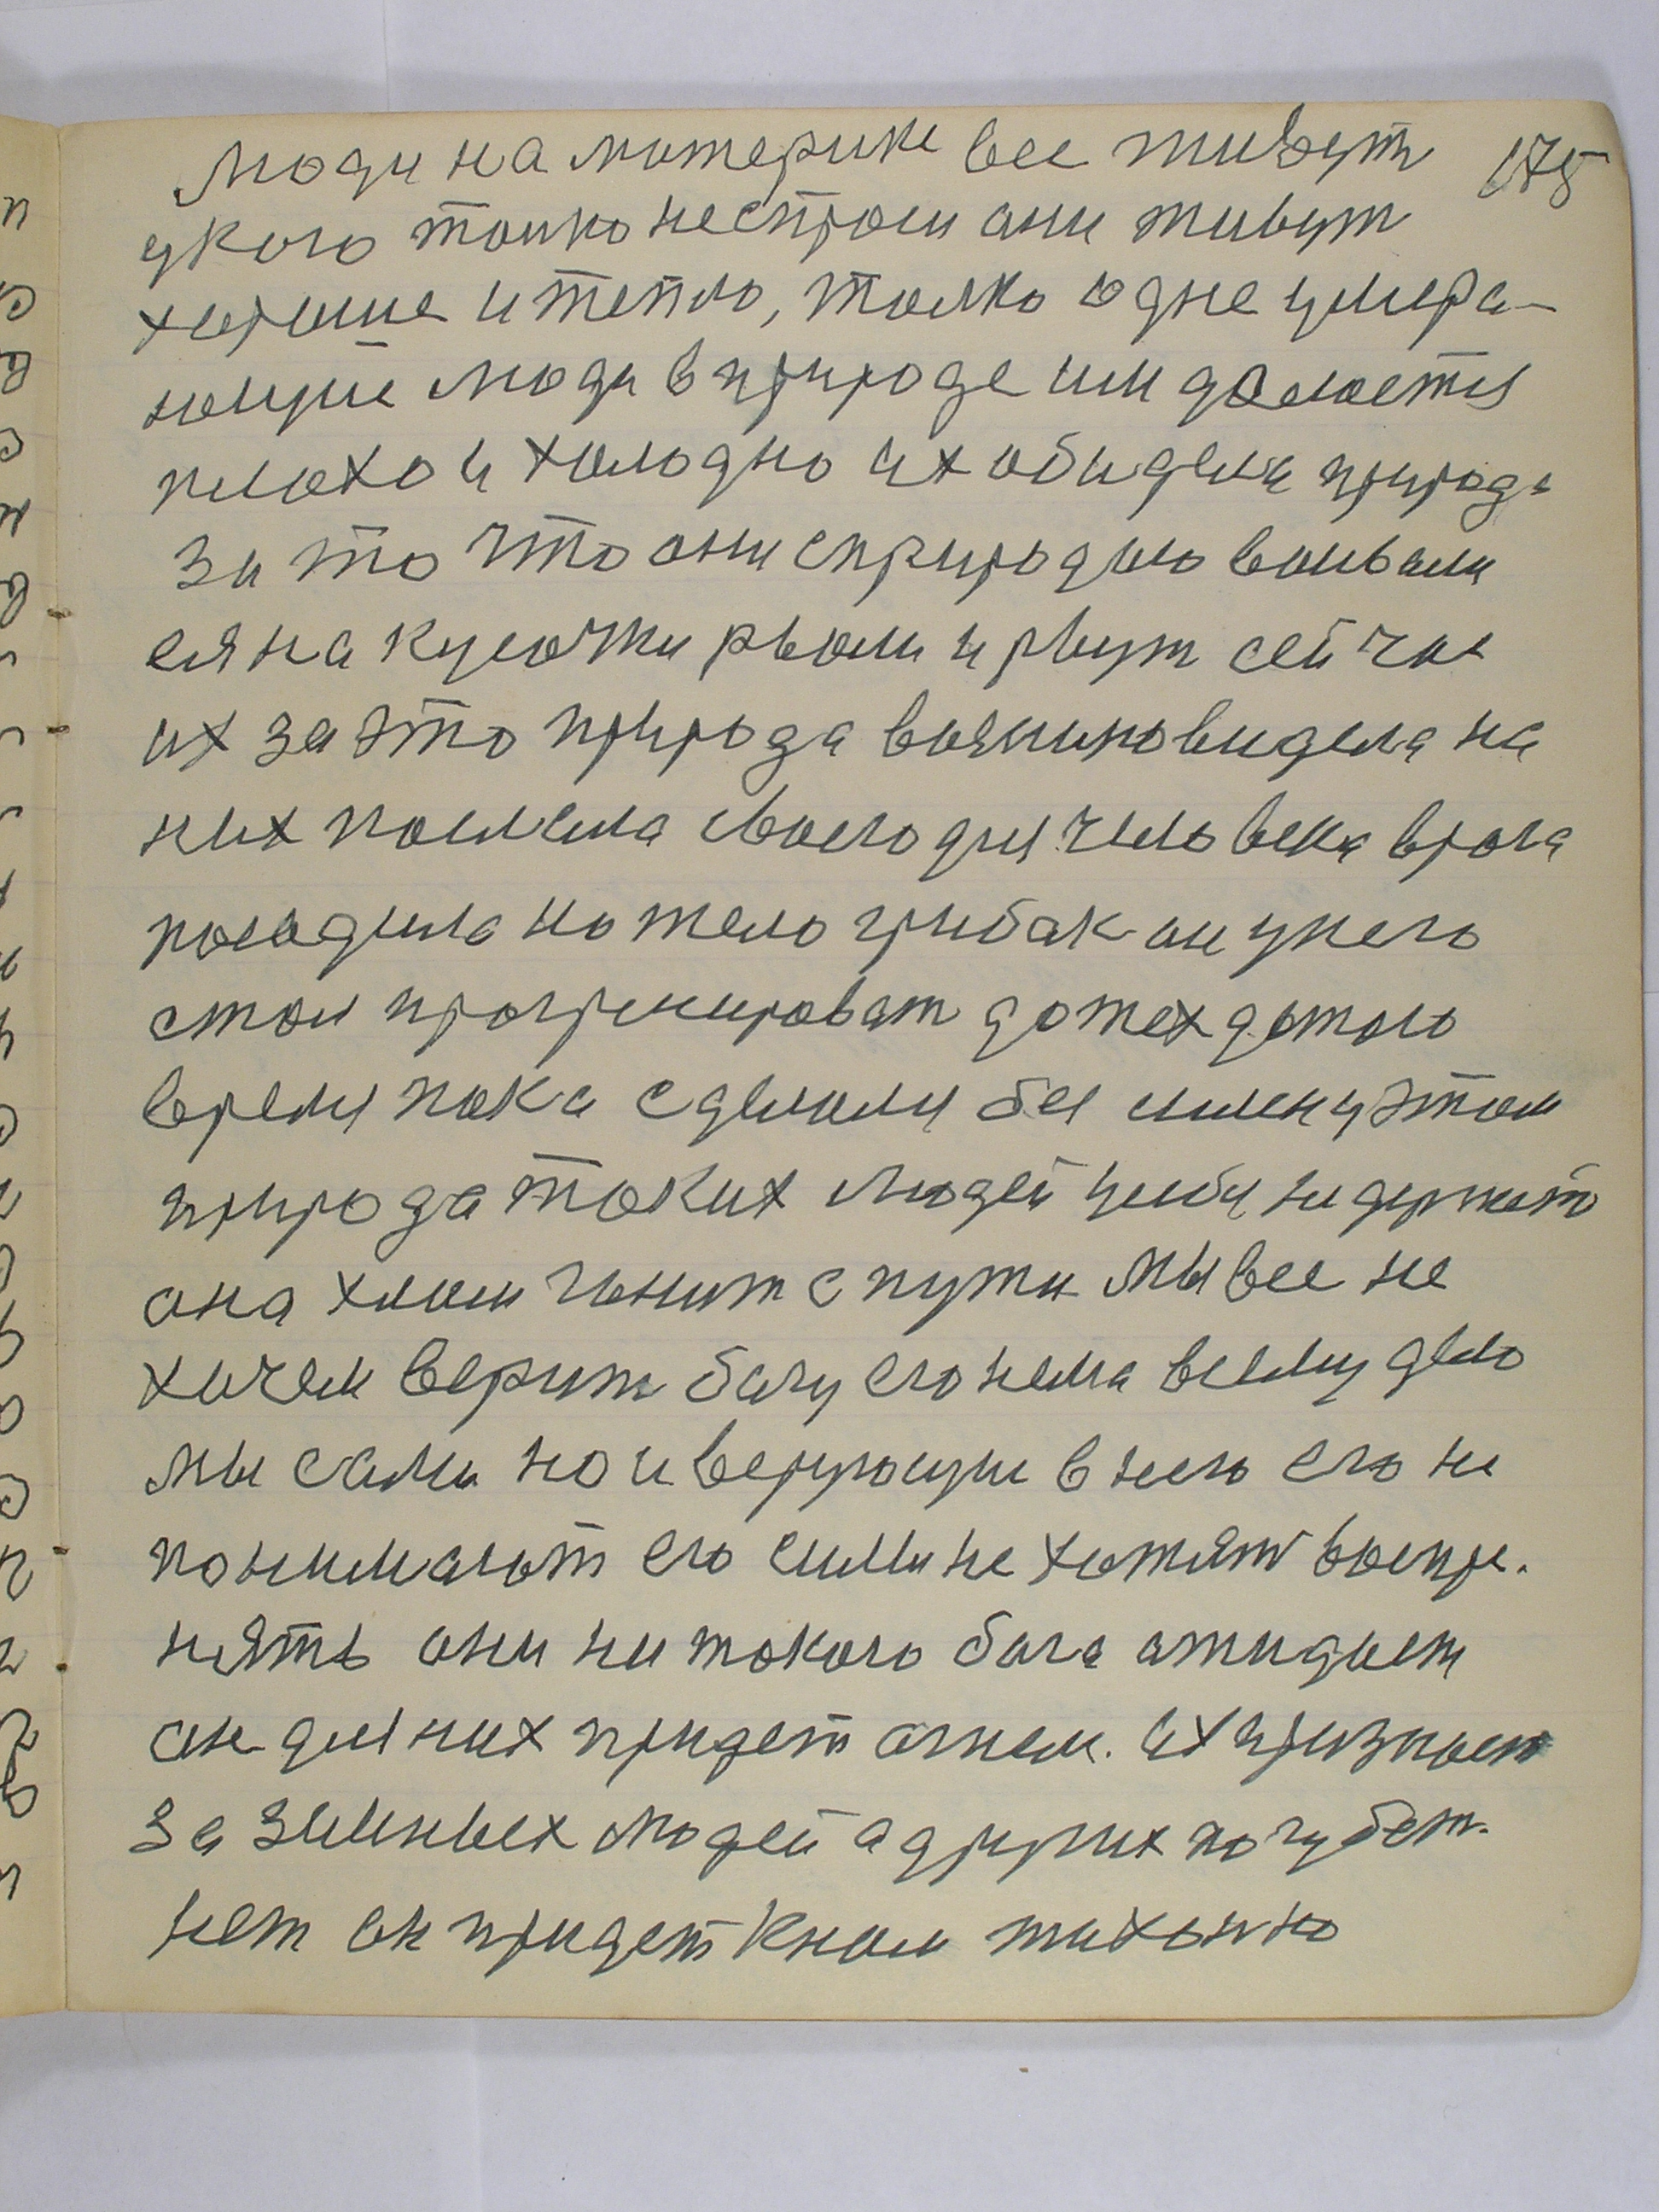 Люди на материке все живут 175
у кого только неспроси они живут
хороше и тепло, толко одне умира-
ющие люди в природе им делается
плохо и холодно их обидела природа
за то что они сприродою воивали
ея на кусочки рвали и рвут сейчас
их за это природа возниновидела на
них послала своего для человека врага
посадила на тело грибак он унего
стал прогренироват до тех дотого
время пока сделали бы ему этом
природа таких людей ус не держит
она хлам гонит с пути Мы все не
хочем верит богу его нема всему дело
мы сами но и верующие в него его не
понимают его силы не хотят воспри-
нять они ни токого бога ожидает
он для них придет огнем. их признает
за земных людей а других погубет.
нет он придет кнам тихонько